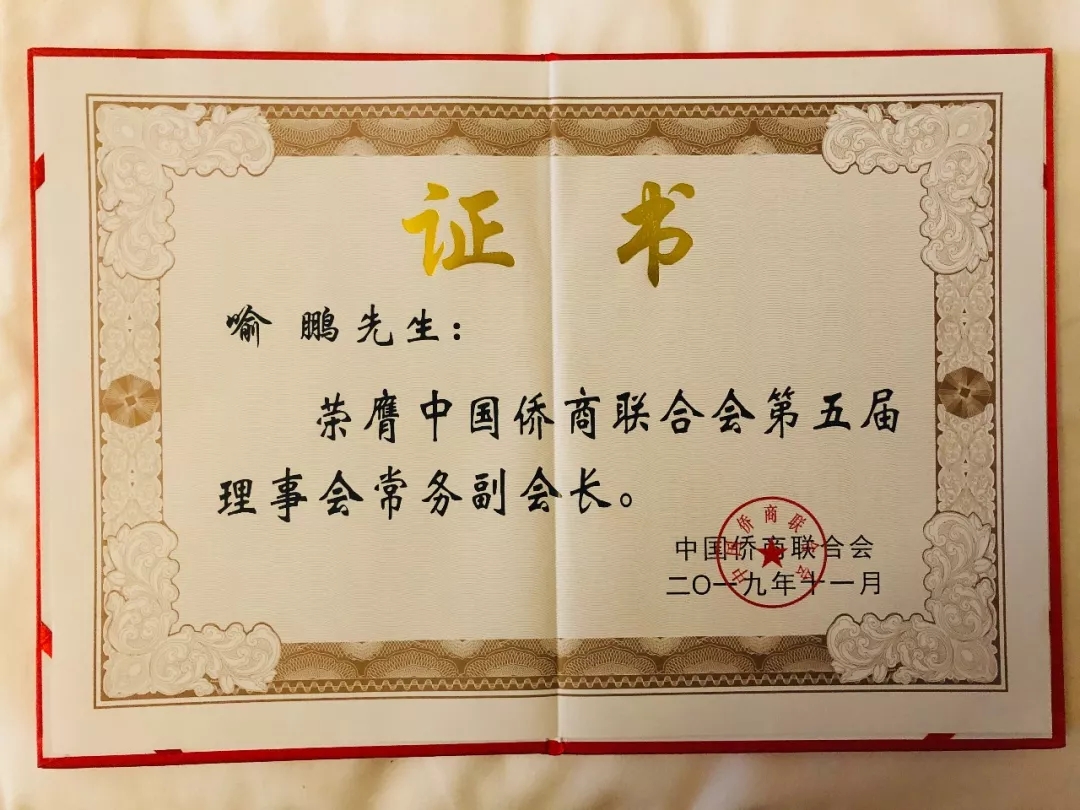 证书
喻鹏先生：
荣膺中国侨商联合会第五届
理事会常务副会长。
中国侨商联合会
二〇一九年十一月
中国侨商联合会